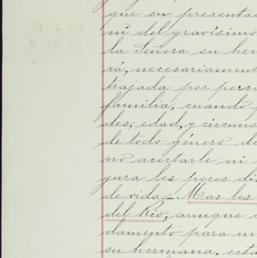 que su presenta
ni del gravísimo
la Señora su her
rá, necesariamen
trajada por per
familia, cuando
des, edad, y circuns
de todo género d
no acortarle ni
gura los pocos dí
de vida. Mas los
del Río, aunque
damento para m
su hermana, esta